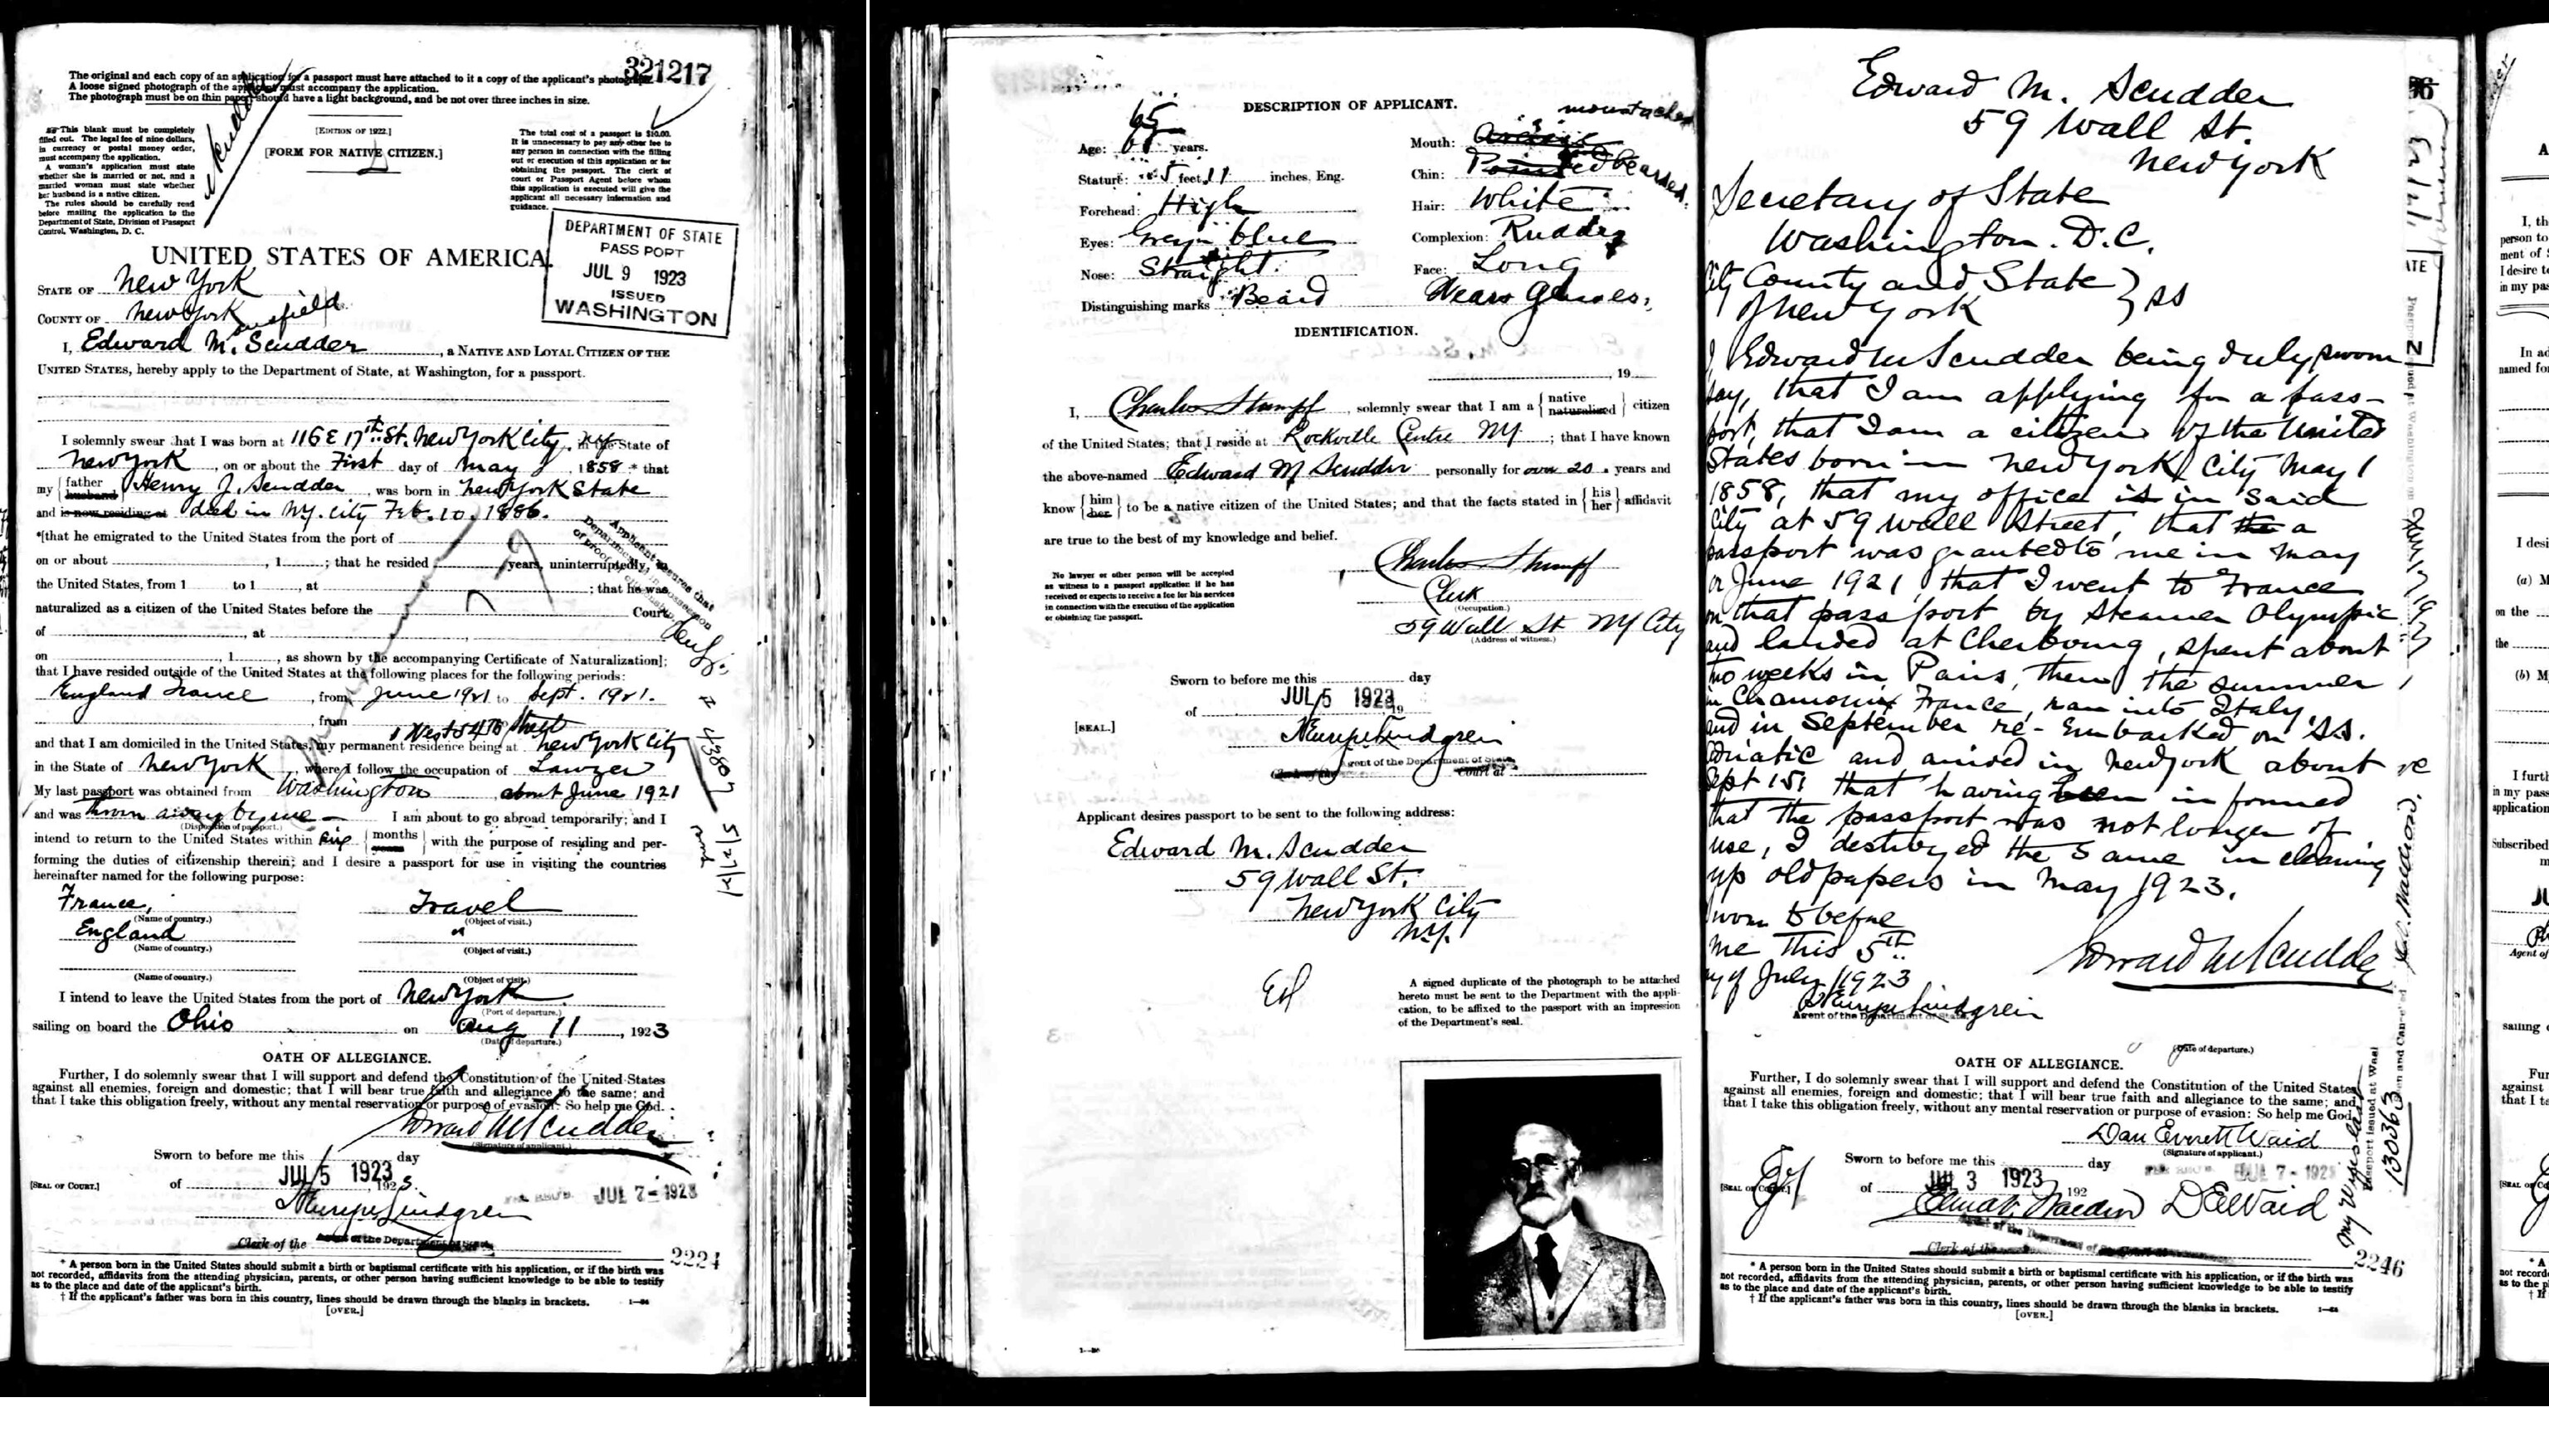 321217
The original and each copy of an application for a passport must have attached to it a copy of the applicant's photograph.
A loose signed photograph of the applicant must accompany the application.
The photograph must be on thin paper, should have a light background, and be not over three inches in size.
This blank must be completely
filled out. The legal fee of nine dollars,
in currency or postal money order,
must accompany the application.
A woman's application must state
whether she is married or not, and a
married woman must state whether
her husband is a native citizen.
The rules should be carefully read
before mailing the application to the
Department of State, Division of Passport
Control, Washington, D. C.
[EDITION OF 1922.]
[FORM FOR NATIVE CITIZEN.]
The total cost of a passport is $10.00.
It is unnecessary to pay any other fee to
any person in connection with the filling
out or execution of this application or for
obtaining the passport. The clerk of
court or Passport Agent before whom
this application is executed will give the
applicant all necessary information and
guidance.
DEPARTMENT OF STATE
PASS PORT
JUL 9 1923
ISSUED
WASHINGTON
UNITED STATES OF AMERICA.
STATE OF New York
COUNTY OF New York
I, Edward M. Scudder, a NATIVE AND LOYAL CITIZEN OF THE
UNITED STATES, hereby apply to the Department of State, at Washington, for a passport.
I solemnly swear that I was born at 116 E 17th St. New York City, in the State of
New York, on or about the First day of May, 1858 * that
my {father husband} Henry J. Scudder, was born in New York State
and is now residing at died in N.Y. City Feb. 10. 1886.
*[that he emigrated to the United States from the port of
on or about , 1 ; that he resided years, uninterruptedly, in
the United States, from 1 to 1 , at ; that he was
naturalized as a citizen of the United States before the Court
of , at ,
on , 1 , as shown by the accompanying Certificate of Naturalization];
that I have resided outside of the United States at the following places for the following periods:
England France, from June 1921 to Sept. 1921.
, from
1 West 54th Street
and that I am domiciled in the United States, my permanent residence being at New York City
in the State of New York, where I follow the occupation of Lawyer
My last passport was obtained from Washington about June 1921
and was thrown away by me I am about to go abroad temporarily; and I
(Disposition of passport.)
intend to return to the United States within six {months years} with the purpose of residing and per-
forming the duties of citizenship therein; and I desire a passport for use in visiting the countries
hereinafter named for the following purpose:
France, Travel
(Name of country.) (Object of visit.)
England "
(Name of country.) (Object of visit.)
(Name of country.) (Object of visit.)
I intend to leave the United States from the port of New York
(Port of departure.)
sailing on board the Ohio on Aug 11, 1923
(Date of departure.)
OATH OF ALLEGIANCE.
Further, I do solemnly swear that I will support and defend the Constitution of the United States
against all enemies, foreign and domestic; that I will bear true faith and allegiance to the same; and
that I take this obligation freely, without any mental reservation or purpose of evasion: So help me God.
Edward M Scudder
(Signature of applicant.)
Sworn to before me this day
JUL 5 1923
[SEAL OF COURT.] of , 1923.
JUL 7 - 1923
Clerk of the Agent of the Department of State
2224
* A person born in the United States should submit a birth or baptismal certificate with his application, or if the birth was
not recorded, affidavits from the attending physician, parents, or other person having sufficient knowledge to be able to testify
as to the place and date of the applicant's birth.
† If the applicant's father was born in this country, lines should be drawn through the blanks in brackets.
[OVER.]
DESCRIPTION OF APPLICANT.
Age: 65 years.
Mouth: moustached
Stature: 5 feet 11 inches, Eng.
Chin: Pointed bearded.
Forehead: High
Hair: White
Eyes: Grey blue
Complexion: Ruddy
Nose: Straight
Face: Long
Distinguishing marks Beard Wears Glasses.
IDENTIFICATION.
, 19
I, Charles Stumpf, solemnly swear that I am a {native naturalized} citizen
of the United States; that I reside at Rockville Centre NY; that I have known
the above-named Edward M Scudder personally for over 20 years and
know {him her} to be a native citizen of the United States; and that the facts stated in {his her} affidavit
are true to the best of my knowledge and belief.
Charles Stumpf
No lawyer or other person will be accepted
as witness to a passport application if he has
received or expects to receive a fee for his services
in connection with the execution of the application
or obtaining the passport.
Clerk
(Occupation.)
59 Wall St NY City
(Address of witness.)
Sworn to before me this day
of JUL 5 1923, 19
[SEAL.]
Agent of the Department of State
Court at
Applicant desires passport to be sent to the following address:
Edward M. Scudder
59 Wall St.
New York City
N.Y.
A signed duplicate of the photograph to be attached
hereto must be sent to the Department with the appli-
cation, to be affixed to the passport with an impression
of the Department's seal.
Edward M. Scudder
59 Wall St.
New York
Secretary of State
Washington. D.C.
City County and State
of New York } ss
I Edward M Scudder being duly sworn
say, that I am applying for a pass-
port, that I am a citizen of the United
States born in New York City May 1
1858, that my office is in said
City at 59 Wall Street, that the a
passport was granted to me in May
or June 1921, that I went to France
on that passport by Steamer Olympic
and landed at Cherbourg, spent about
two weeks in Paris, then the summer
in Chamonix France, ran into Italy
and in September re-embarked on SS.
Adriatic and arrived in New York about
Sept 15, that having been informed
that the passport was not longer of
use, I destroyed the same in cleaning
up old papers in May 1923.
Sworn to before
me this 5th
day of July 1923
Edward M Scudder
Agent of the Department of State
(Date of departure.)
OATH OF ALLEGIANCE.
Further, I do solemnly swear that I will support and defend the Constitution of the United States
against all enemies, foreign and domestic; that I will bear true faith and allegiance to the same; and
that I take this obligation freely, without any mental reservation or purpose of evasion: So help me God.
Dan Everett Waid
(Signature of applicant.)
Sworn to before me this day
of JUL 3 1923 192
JUL 7 - 1923
D E Waid
Clerk of the
130363
2246
* A person born in the United States should submit a birth or baptismal certificate with his application, or if the birth was
not recorded, affidavits from the attending physician, parents, or other person having sufficient knowledge to be able to testify
as to the place and date of the applicant's birth.
† If the applicant's father was born in this country, lines should be drawn through the blanks in brackets.
[OVER.]